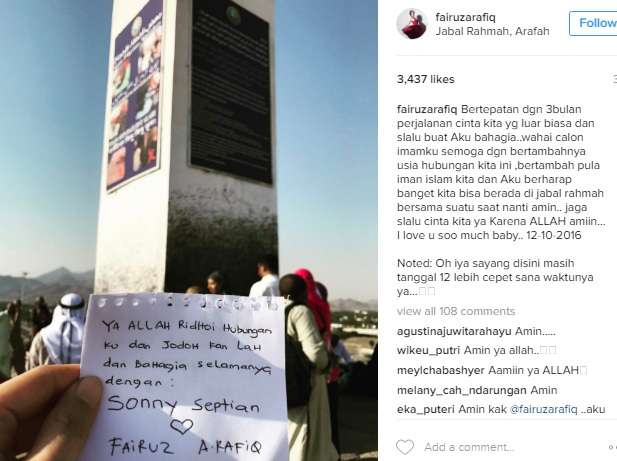 YA ALLAH Ridhoi Hubungan
ku dan Jodoh kan Lah
dan Bahagia selamanya
dengan :
Sonny Septian
Fairuz A.Rafiq
fairuzarafiq
Jabal Rahmah, Arafah
Follow
3,437 likes
fairuzarafiq Bertepatan dgn 3bulan
perjalanan cinta kita yg luar biasa dan
slalu buat Aku bahagia..wahai calon
imamku semoga dgn bertambahnya
usia hubungan kita ini ,bertambah pula
iman islam kita dan Aku berharap
banget kita bisa berada di jabal rahmah
bersama suatu saat nanti amin.. jaga
slalu cinta kita ya Karena ALLAH amiin...
I love u soo much baby.. 12-10-2016
Noted: Oh iya sayang disini masih
tanggal 12 lebih cepet sana waktunya
ya...
view all 108 comments
agustinajuwitarahayu Amin.....
wikeu_putri Amin ya allah..
meylchabashyer Aamiin ya ALLAH
melany_cah_ndarungan Amin
eka_puteri Amin kak @fairuzarafiq ..aku
Add a comment...